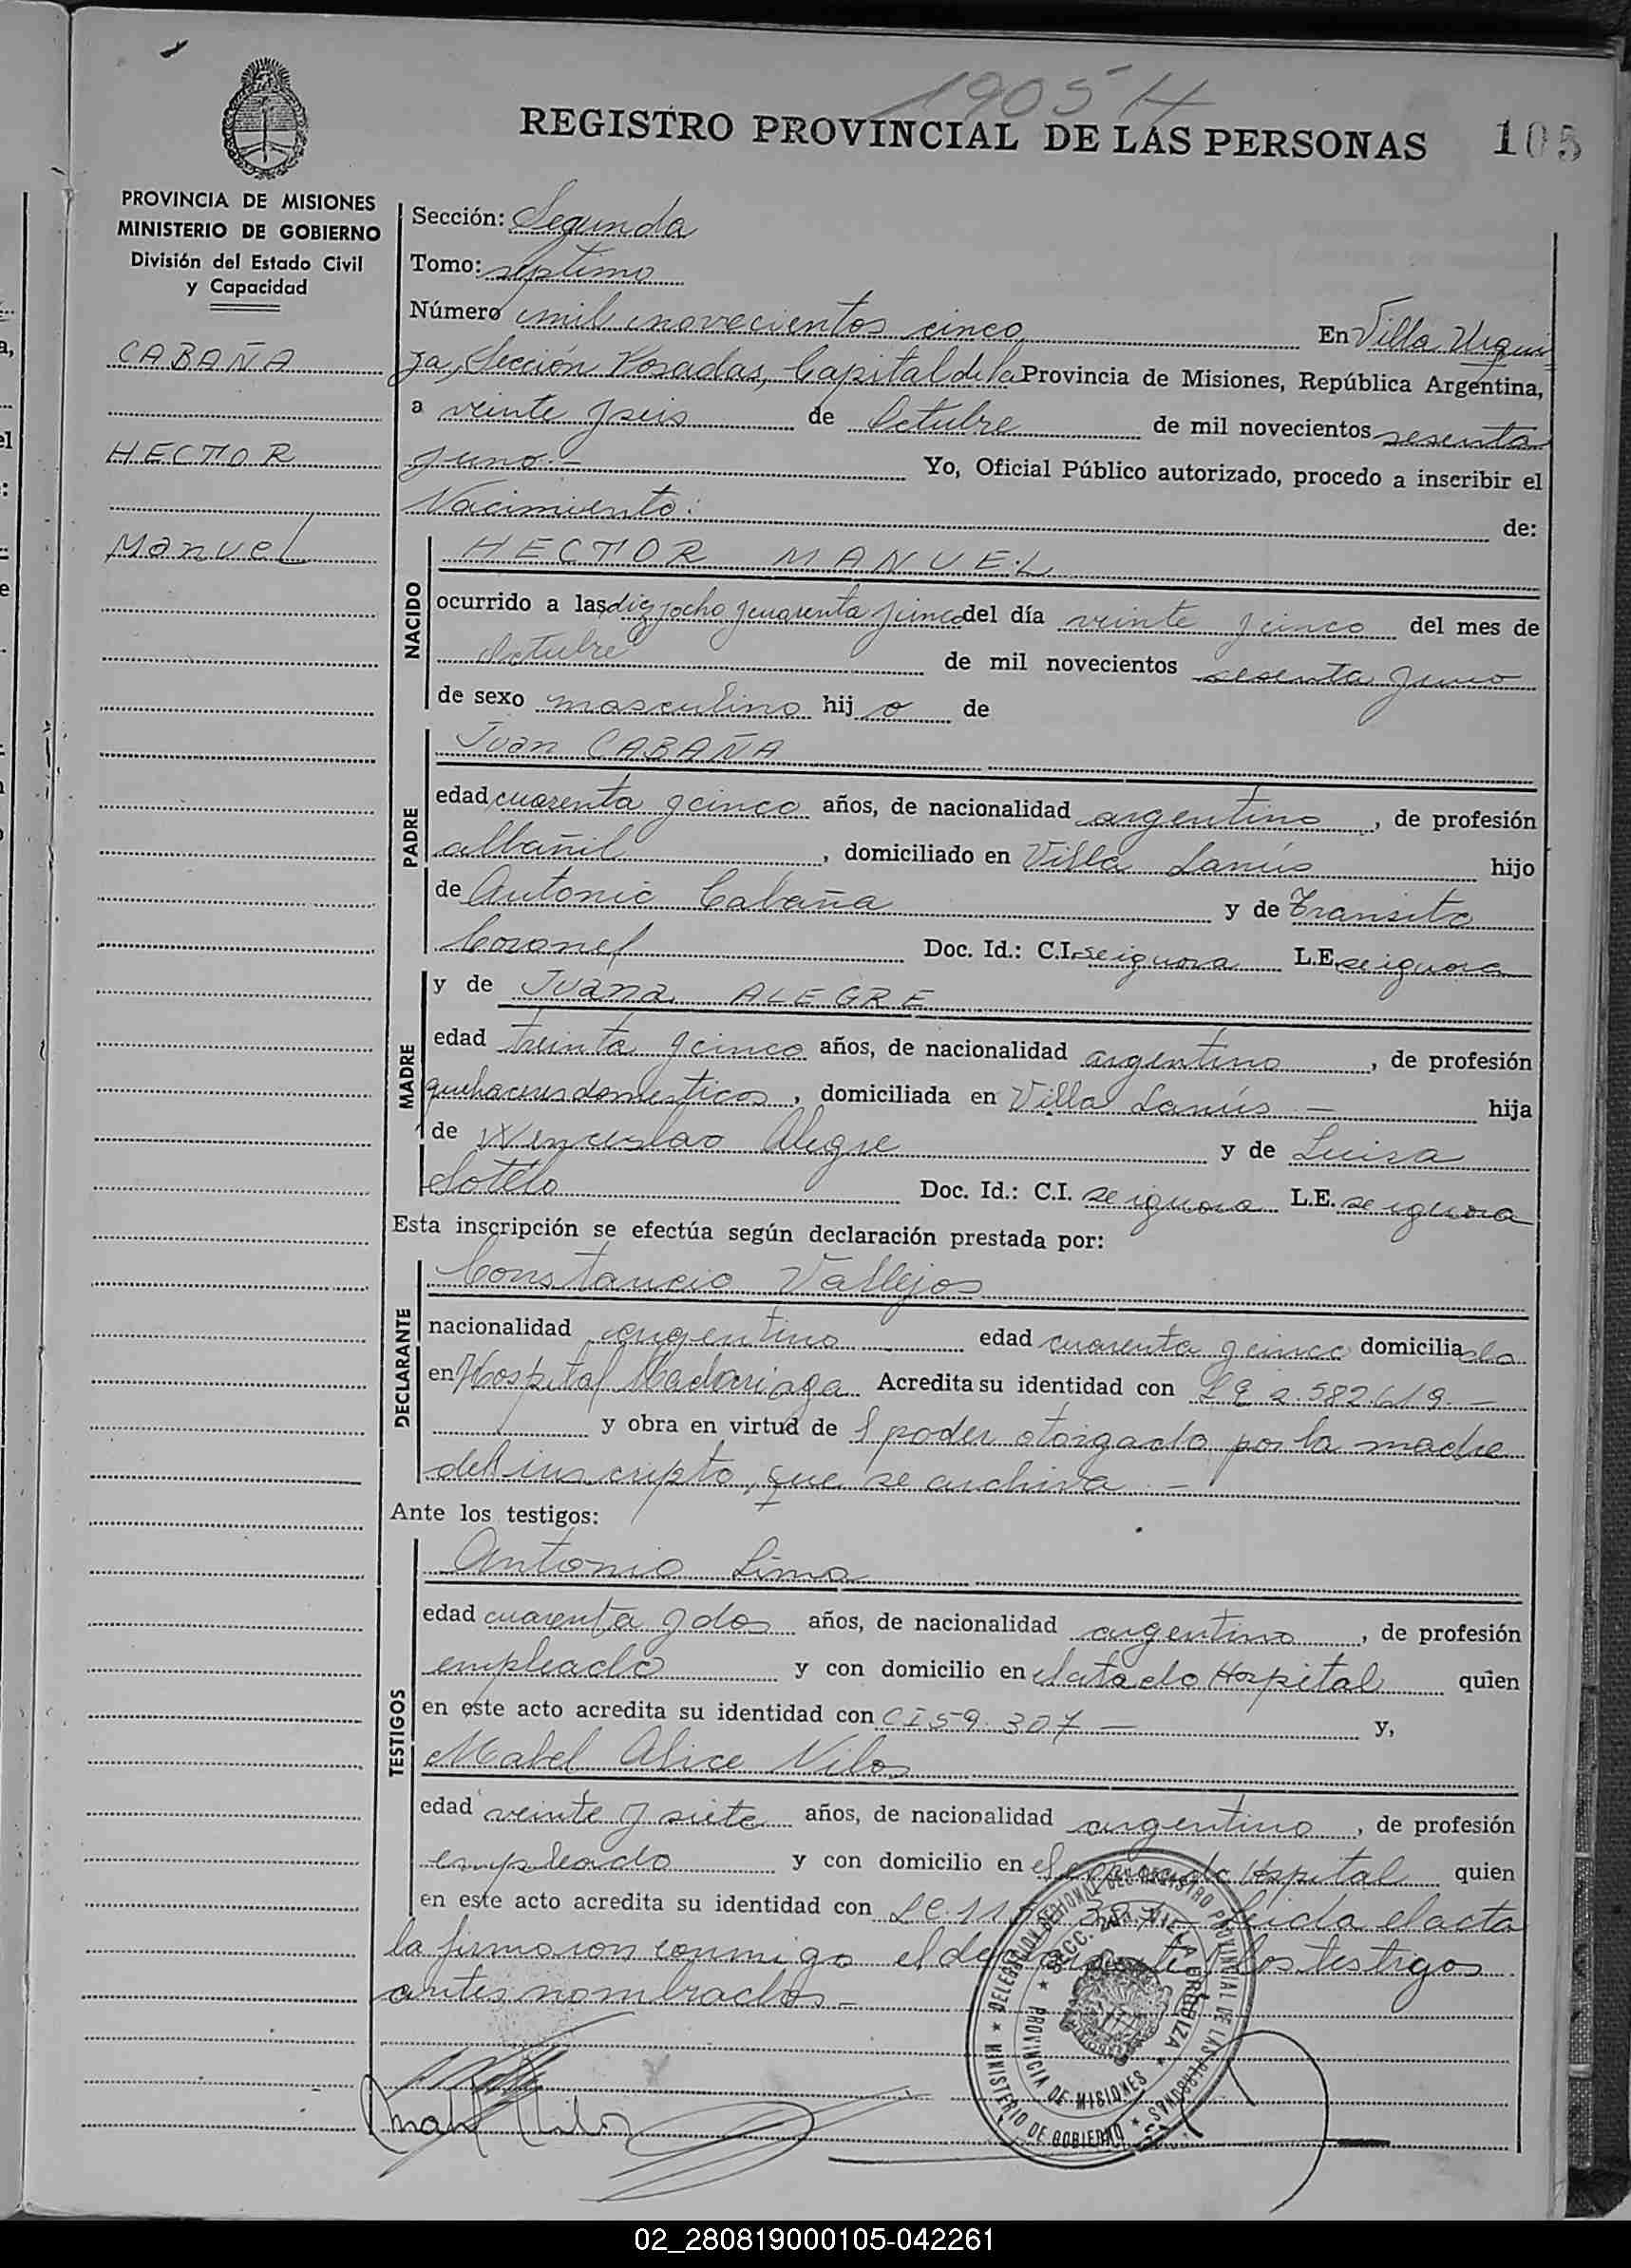 1905 H
REGISTRO PROVINCIAL DE LAS PERSONAS 105
PROVINCIA DE MISIONES
MINISTERIO DE GOBIERNO
División del Estado Civil
y Capacidad
CABAÑA
HECTOR
Manuel
Sección: Segunda
Tomo: septimo
Número mil novecientos cinco En Villa Urqui
za, Sección Posadas, Capital de la Provincia de Misiones, República Argentina,
a veinte y seis de Octubre de mil novecientos sesenta
y uno.- Yo, Oficial Público autorizado, procedo a inscribir el
Nacimiento: de:
NACIDO
HECTOR MANUEL
ocurrido a las diez y ocho y cuarenta y cinco del día veinte y cinco del mes de
Octubre de mil novecientos sesenta y uno
de sexo masculino hij o de
PADRE
Juan CABAÑA
edad cuarenta y cinco años, de nacionalidad argentino, de profesión
albañil, domiciliado en Villa Lanús hijo
de Antonio Cabaña y de Transito
Coronel Doc. Id.: C.I. se ignora L.E. se ignora
MADRE
y de Juana ALEGRE
edad treinta y cinco años, de nacionalidad argentino, de profesión
quehaceres domesticos, domiciliada en Villa Lanús - hija
de Wenceslao Alegre y de Luisa
Sotelo Doc. Id.: C.I. se ignora L.E. se ignora
Esta inscripción se efectúa según declaración prestada por:
DECLARANTE
Constancio Vallejos
nacionalidad argentino edad cuarenta y cinco domiciliado
en Hospital Madariaga Acredita su identidad con L E 2.582.619.-
y obra en virtud de l poder otorgado por la madre
del inscripto, que se archiva.-
Ante los testigos:
TESTIGOS
Antonio Lima
edad cuarenta y dos años, de nacionalidad argentino, de profesión
empleado y con domicilio en el Hospital quien
en este acto acredita su identidad con CI 59.307 - y,
Mabel Alice Vilos
edad veinte y siete años, de nacionalidad argentino, de profesión
empleado y con domicilio en el Hospital quien
en este acto acredita su identidad con Leida el acta
la firmaron conmigo el declarante y los testigos
antes nombrados -
MINISTERIO DE GOBIERNO ★ DELEGACION REGIONAL DEL REGISTRO PROVINCIAL DE LAS PERSONAS
VILLA URQUIZA ★ PROVINCIA DE MISIONES ★
02_280819000105-042261